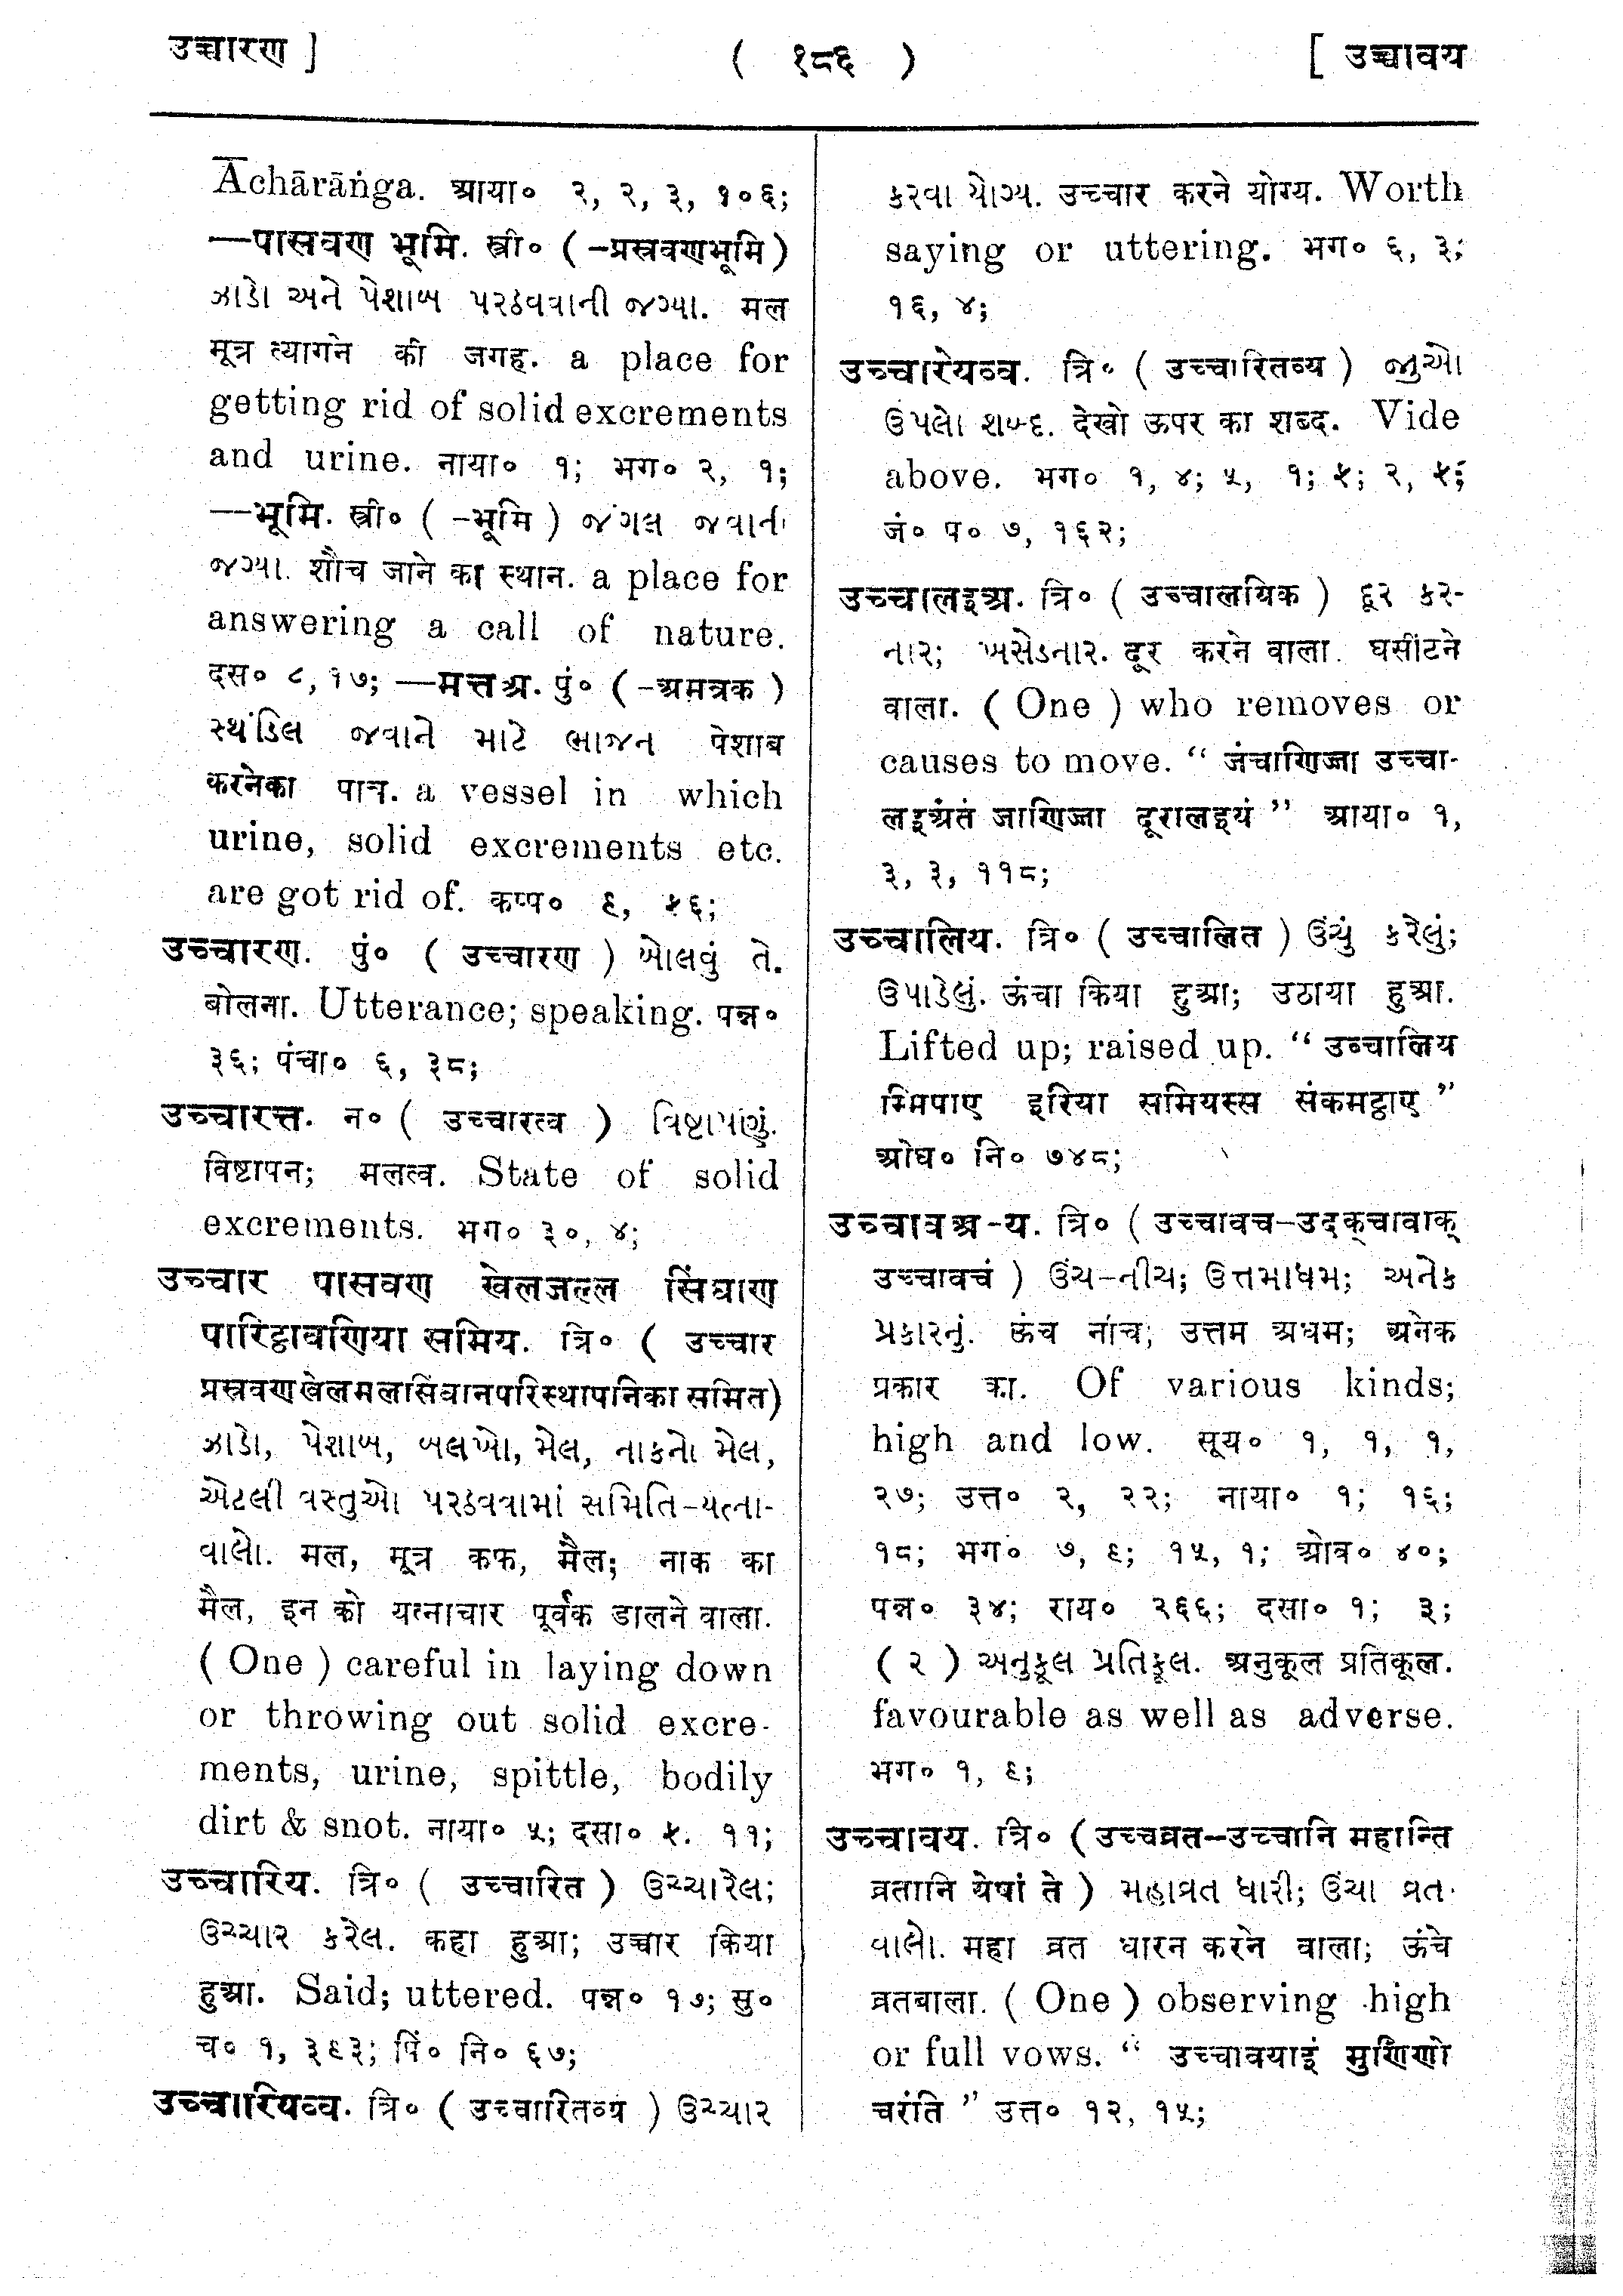 उच्चारण ]
( १८६ )
[ उच्चावय
Āchārāṅga. आया० २, २, ३, १०६;
—पासवण भूमि. स्त्री० ( -प्रस्रवणभूमि )
ઝાડો અને પેશાબ પરઠવવાની જગ્યા. मल
मूत्र त्यागने की जगह. a place for
getting rid of solid excrements
and urine. नाया० १; भग० २, १;
—भूमि. स्त्री० ( -भूमि ) જંગલ જવાની
જગ્યા. शौच जाने का स्थान. a place for
answering a call of nature.
दस० ८, १७; —मत्तअ. पुं० ( -अमत्रक )
સ્થંડિલ જવાને માટે ભાજન पेशाब
करनेका पात्र. a vessel in which
urine, solid excrements etc.
are got rid of. कप्प० ६, ५६;
उच्चारण. पुं० ( उच्चारण ) બોલવું તે.
बोलना. Utterance; speaking. पन्न०
३६; पंचा० ६, ३८;
उच्चारत्त. न० ( उच्चारत्व ) વિષ્ટાપણું.
विष्टापन; मलत्व. State of solid
excrements. भग० ३०, ४;
उच्चार पासवण खेलजल्ल सिंघाण
पारिट्ठावणिया समिय. त्रि० ( उच्चार
प्रस्रवणखेलमलसिंघानपरिस्थापनिका समित)
ઝાડો, પેશાબ, બલખો, મેલ, નાકનો મેલ,
એટલી વસ્તુઓ પરઠવવામાં સમિતિ-યત્ના-
વાલો. मल, मूत्र कफ, मैल; नाक का
मैल, इन को यत्नाचार पूर्वक डालने वाला.
( One ) careful in laying down
or throwing out solid excre-
ments, urine, spittle, bodily
dirt & snot. नाया० ५; दसा० ५. ११;
उच्चारिय. त्रि० ( उच्चारित ) ઉચ્ચારેલ;
ઉચ્ચાર કરેલ. कहा हुआ; उच्चार किया
हुआ. Said; uttered. पन्न० १७; सु०
च० १, ३९३; पिं० नि० ६७;
उच्चारियव्व. त्रि० ( उच्चारितव्य ) ઉચ્ચાર
કરવા યોગ્ય. उच्चार करने योग्य. Worth
saying or uttering. भग० ६, ३;
१६, ४;
उच्चारेयव्व. त्रि० ( उच्चारितव्य ) જુઓ
ઉપલો શબ્દ. देखो ऊपर का शब्द. Vide
above. भग० १, ४; ५, १; ५; २, ५;
जं० प० ७, १६२;
उच्चालइअ. त्रि० ( उच्चालयिक ) દૂર કર-
નાર; ખસેડનાર. दूर करने वाला. घसीटने
वाला. ( One ) who removes or
causes to move. “ जंचाणिज्जा उच्चा-
लइअंतं जाणिज्जा दूरालइयं ” आया० १,
३, ३, ११८;
उच्चालिय. त्रि० ( उच्चालित ) ઉંચું કરેલું;
ઉપાડેલું. ऊंचा किया हुआ; उठाया हुआ.
Lifted up; raised up. “ उच्चालिय
म्मिपाए इरिया समियस्स संकमट्ठाए ”
ओघ० नि० ७४८;
उच्चावअ-य. त्रि० ( उच्चावच-उदक्चावाक्
उच्चावचं ) ઉંચ-નીચ; ઉત્તમાધમ; અનેક
પ્રકારનું. ऊंच नीच; उत्तम अधम; अनेक
प्रकार का. Of various kinds;
high and low. सूय० १, १, १,
२७; उत्त० २, २२; नाया० १; १६;
१८; भग० ७, ६; १५, १; ओव० ४०;
पन्न० ३४; राय० २६६; दसा० १; ३;
( २ ) અનુકૂલ પ્રતિકૂલ. अनुकूल प्रतिकूल.
favourable as well as adverse.
भग० १, ६;
उच्चावय. त्रि० ( उच्चव्रत-उच्चानि महान्ति
व्रतानि येषां ते ) મહાવ્રત ધારી; ઉંચા વ્રત-
વાલો. महा व्रत धारन करने वाला; ऊंचे
व्रतवाला. ( One ) observing high
or full vows. “ उच्चावयाइं मुणिणो
चरंति ” उत्त० १२, १५;